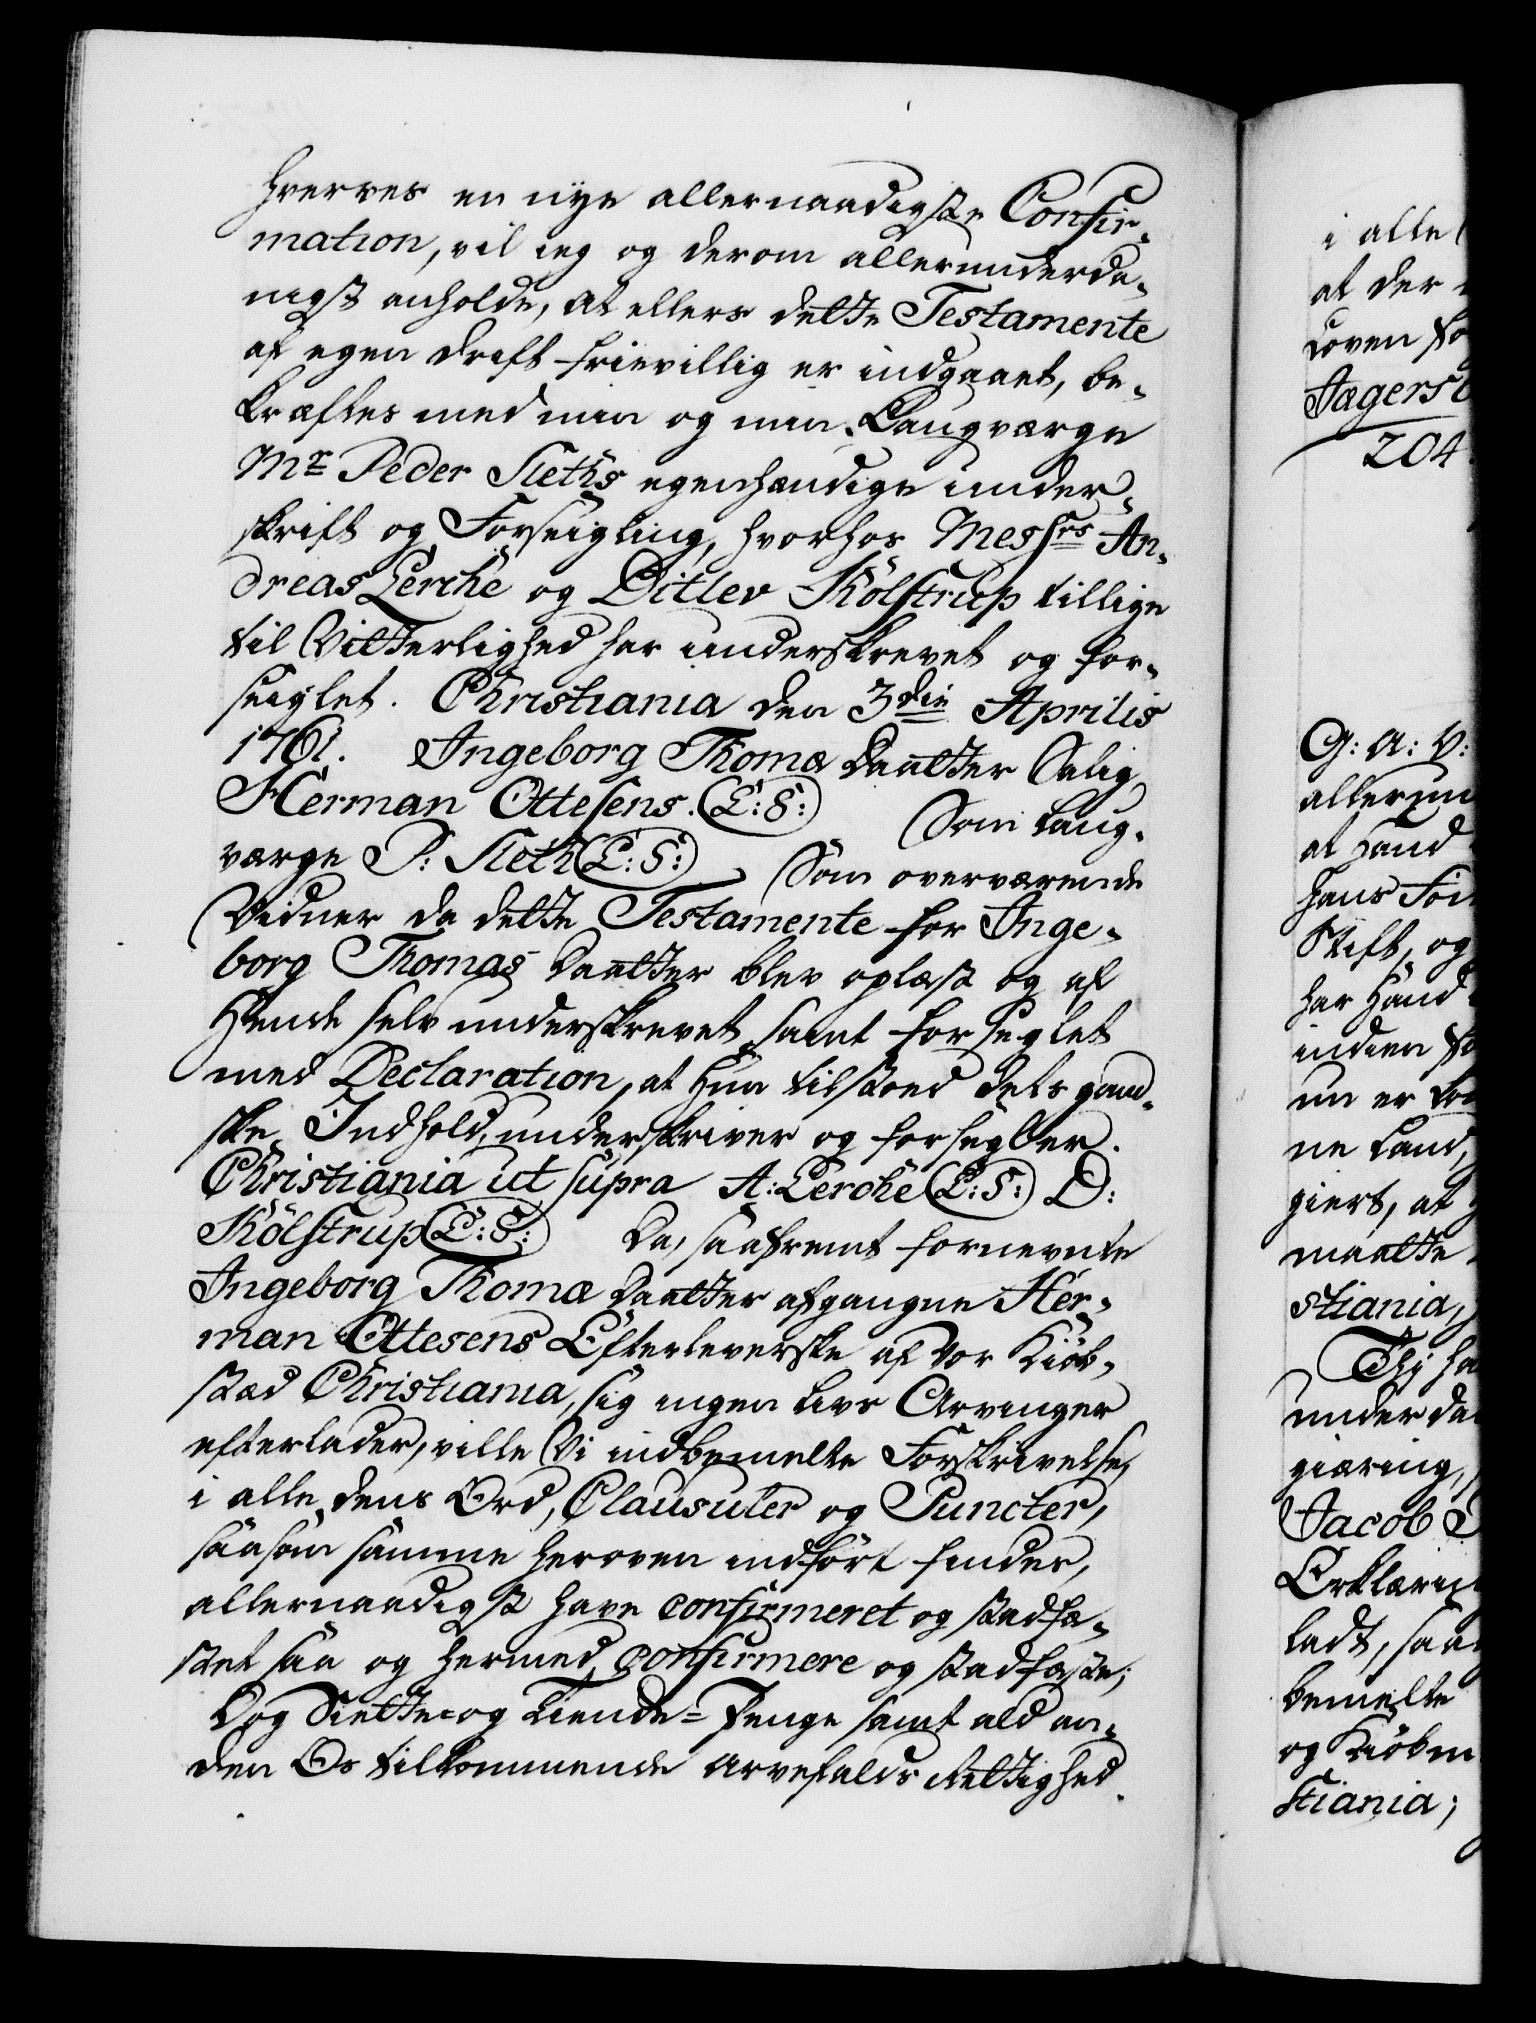 hverves en nye allernaadigste Confir-
mation, vil ieg og derom allerunderda-
nigst anholde, at ellers dette Testamente
af egen drift frievillig er indgaaet, be-
kræftes med min og min Laugværge
Mr Peder Sleths egenhændige under-
skrift og Forseigling, hvorhos Messrs An-
dreas Lerche og Ditlev Kölstrup tillige
til Vitterlighed har underskrevet og for-
seiglet. Christiania den 3die Aprilis
1761. Ingeborg Thomæ Daatter Salig
Herman Ottesens. (L:S:) Som Laug-
værge P: Sleth (L:S:) Som overværende
Vidner da dette Testamente for Inge-
borg Thomas Daatter blev oplæst og af
Hende selv underskrevet samt forseglet
med Declaration, at Hun tilstoed dets gand-
ske Indhold, underskriver og forsegler.
Christiania ut supra A: Lerche (L:S:) D:
Kölstrup (L:S:) Da, saafremt fornevnte
Ingeborg Thomæ Daatter afgangne Her-
man Ottesens Efterleverske af Vor Kiöb-
stæd Christiania, sig ingen Livs Arvinger
efterlader, ville Vi indbemelte Forskrivelse,
i alle dens Ord, Clausuler og Puncter,
saasom samme heroven indfört findes,
allernaadigst have confirmeret og stadfæ-
stet saa og hermed confirmere og stadfæste;
Dog Siette- og Tiende-Penge samt ald an-
den Os tilkommende Arvefalds Rettighed
i alle
at der
Loven
Jægers
204
G: A: V:
allerun
at Hand
hans
Stift, og
har Hand
indien
un er
ne Land,
giert, at
maatte
stiania,
Thj ha
underda
giæring,
Jacob
Erklæring
ladt, saa
bemelte
og Kiöbm
stiania;